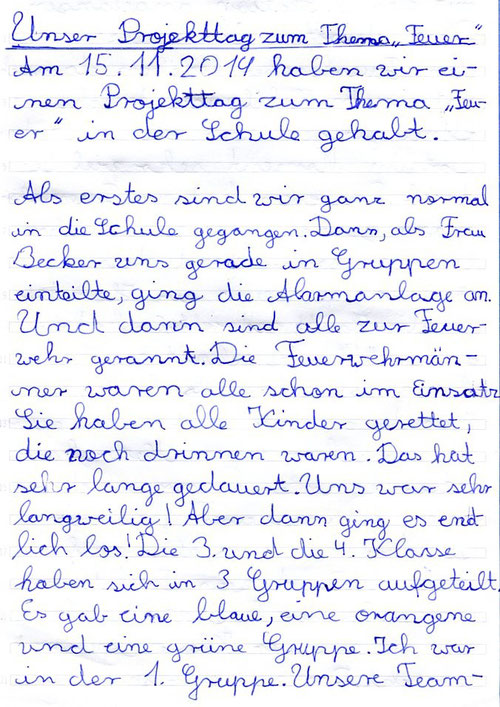 Unser Projekttag zum Thema „Feuer“
Am 15.11.2014 haben wir ei-
nen Projekttag zum Thema „Feu-
er“ in der Schule gehabt.
Als erstes sind wir ganz normal
in die Schule gegangen. Dann, als Frau
Becker uns gerade in Gruppen
einteilte, ging die Alarmanlage an.
Und dann sind alle zur Feuer-
wehr gerannt. Die Feuerwehrmän-
ner waren alle schon im Einsatz
Sie haben alle Kinder gerettet,
die noch drinnen waren. Das hat
sehr lange gedauert. Uns war sehr
langweilig! Aber dann ging es end
lich los! Die 3. und die 4. Klasse
haben sich in 3 Gruppen aufgeteilt.
Es gab eine blaue, eine orangene
und eine grüne Gruppe. Ich war
in der 1. Gruppe. Unsere Team-